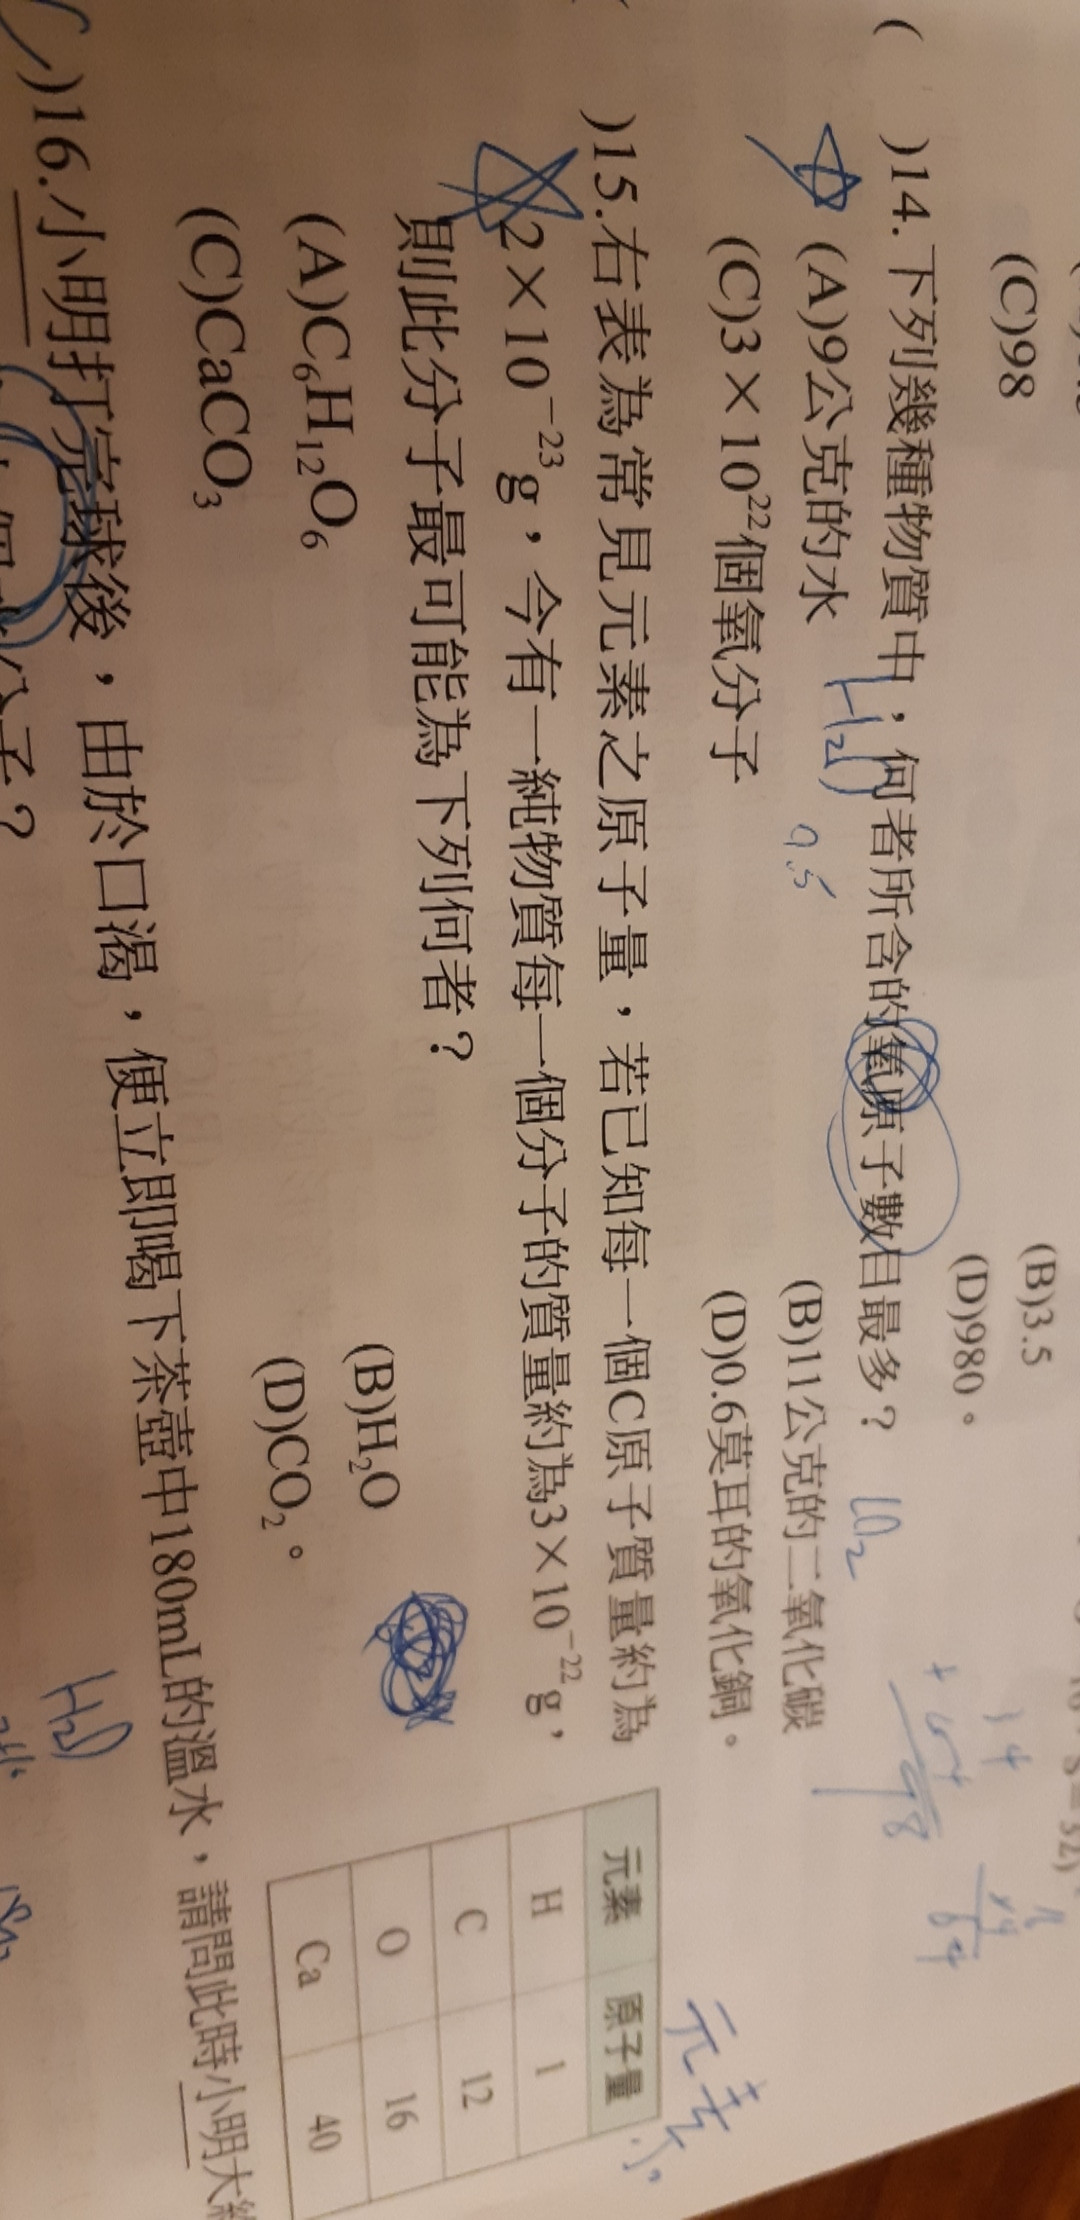 (C)98
(B)3.5
(D)980。
( )14.下列幾種物質中，何者所含的氧原子數目最多？
(A)9公克的水
H₂O
0.5
(B)11公克的二氧化碳
CO₂
(C)3×10²²個氧分子
(D)0.6莫耳的氧化銅。
)15.右表為常見元素之原子量，若已知每一個C原子質量約為
2×10⁻²³g，今有一純物質每一個分子的質量約為3×10⁻²²g，
則此分子最可能為下列何者？
(A)C₆H₁₂O₆
(B)H₂O
(C)CaCO₃
(D)CO₂。
元素 原子量
H 1
C 12
O 16
Ca 40
元素
)16.小明打完球後，由於口渴，便立即喝下茶壺中180mL的溫水，請問此時小明大約
分子？
H₂O